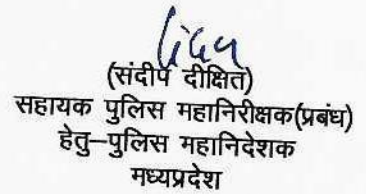 (संदीप दीक्षित)
सहायक पुलिस महानिरीक्षक(प्रबंध)
हेतु–पुलिस महानिदेशक
मध्यप्रदेश